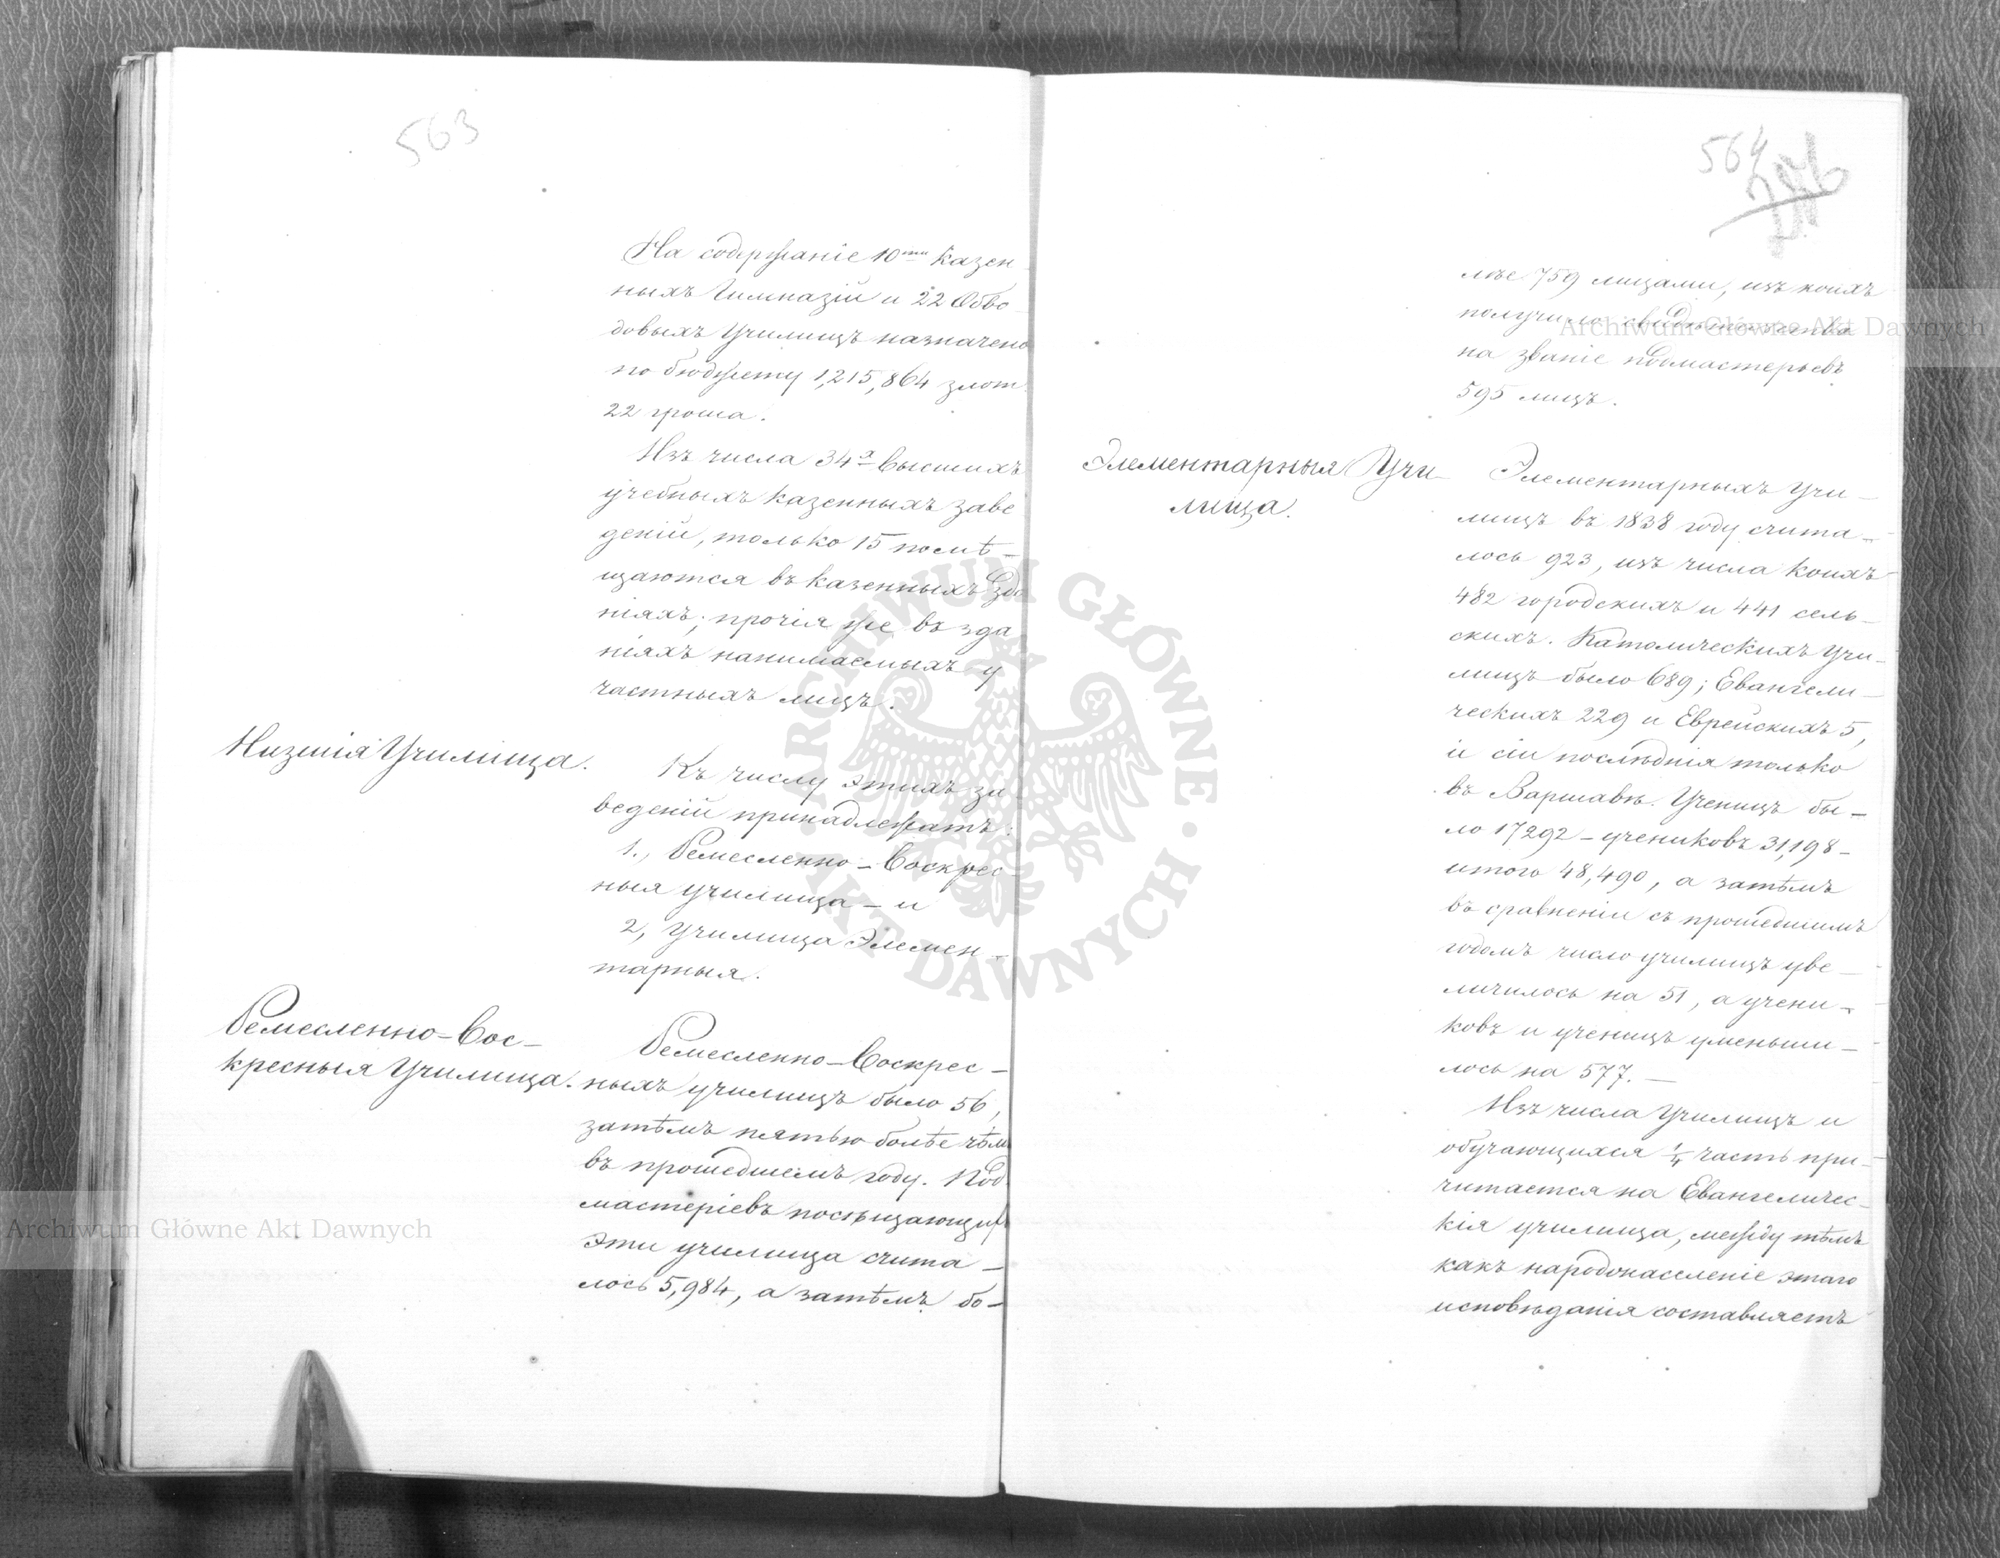 563
На содержаніе 10ти казен
ныхъ Гимназій и 22 Обво
довыхъ Училищъ назначено
по бюджету 1,215,864 злот.
22 гроша.
Изъ числа 34х высшихъ
учебныхъ казенныхъ заве
деній, только 15 помѣ-
щаются въ казенныхъ зда
ніяхъ; прочія же въ зда
ніяхъ нанимаемыхъ у
частныхъ лицъ.
Низшія Училища.
Къ числу этихъ за
веденій принадлежатъ:
1., Ремесленно-Воскрес-
ныя училища - и
2, Училища Элемен-
тарныя.
Ремесленно-Вос-
кресныя Училища.
Ремесленно-Воскрес-
ныхъ училищъ было 56,
затѣмъ пятью болѣе чѣмъ
въ прошедшемъ году. Под
мастеріевъ посѣщающихъ
эти училища счита-
лось 5,984, а затѣмъ бо-
564
лѣе 759 лицами, изъ коихъ
получили свидѣтельства
на званіе подмастерьевъ
595 лицъ.
Элементарныя Учи-
лища.
Элементарныхъ Учи-
лищъ въ 1838 году счита-
лось 923, изъ числа коихъ
482 городскихъ и 441 сель-
скихъ. Католическихъ Учи-
лищъ было 689; Евангели-
ческихъ 229 и Еврейскихъ 5,
и сіи послѣднія только
въ Варшавѣ. Ученицъ бы-
ло 17292 - учениковъ 31,198 -
итого 48,490, а затѣмъ
въ сравненіи съ прошедшимъ
годомъ число училищъ уве-
личилось на 51, а учени-
ковъ и ученицъ уменьши-
лось на 577. -
Изъ числа Училищъ и
обучающихся 1/4 часть при-
читается на Евангеличес-
кія училища, между тѣмъ
какъ народонаселеніе этаго
исповѣданія составляетъ
Archiwum Główne Akt Dawnych
Archiwum Główne Akt Dawnych
ARCHIWUM GŁÓWNE AKT DAWNYCH